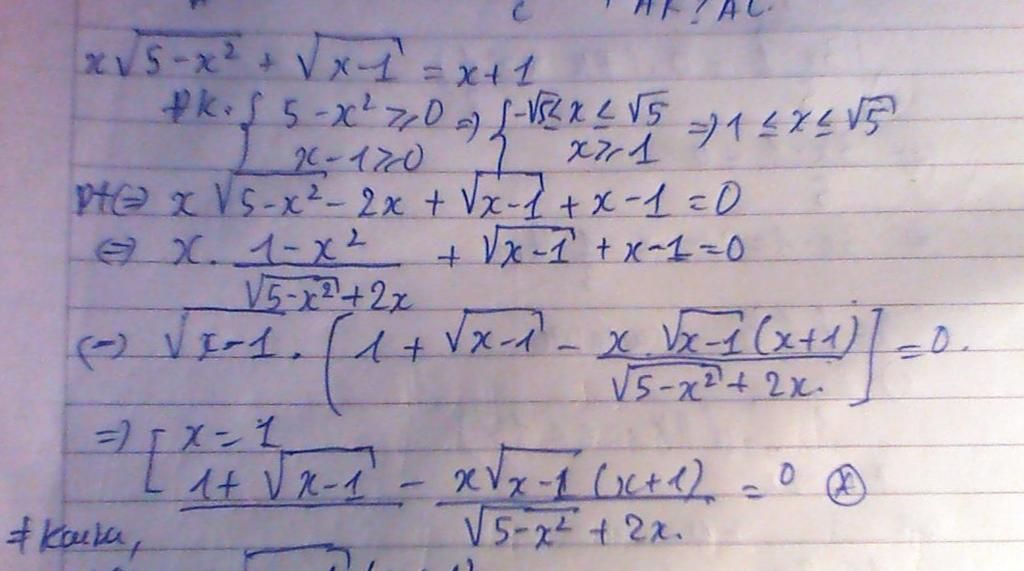 c AK? AC.
x√(5-x²) + √(x-1) = x+1
đk: { 5-x² ≥ 0 => { -√5 ≤ x ≤ √5 => 1 ≤ x ≤ √5
x-1 ≥ 0 x ≥ 1
pt <=> x√(5-x²) - 2x + √(x-1) + x-1 = 0
<=> x. (1-x²)/(√(5-x²)+2x) + √(x-1) + x-1 = 0
<=> √(x-1) . [1 + √(x-1) - (x.√(x-1)(x+1))/(√(5-x²) + 2x.)] = 0.
=> [ x = 1
1+√(x-1) - (x√(x-1)(x+1))/(√(5-x²) + 2x.) = 0 (*)